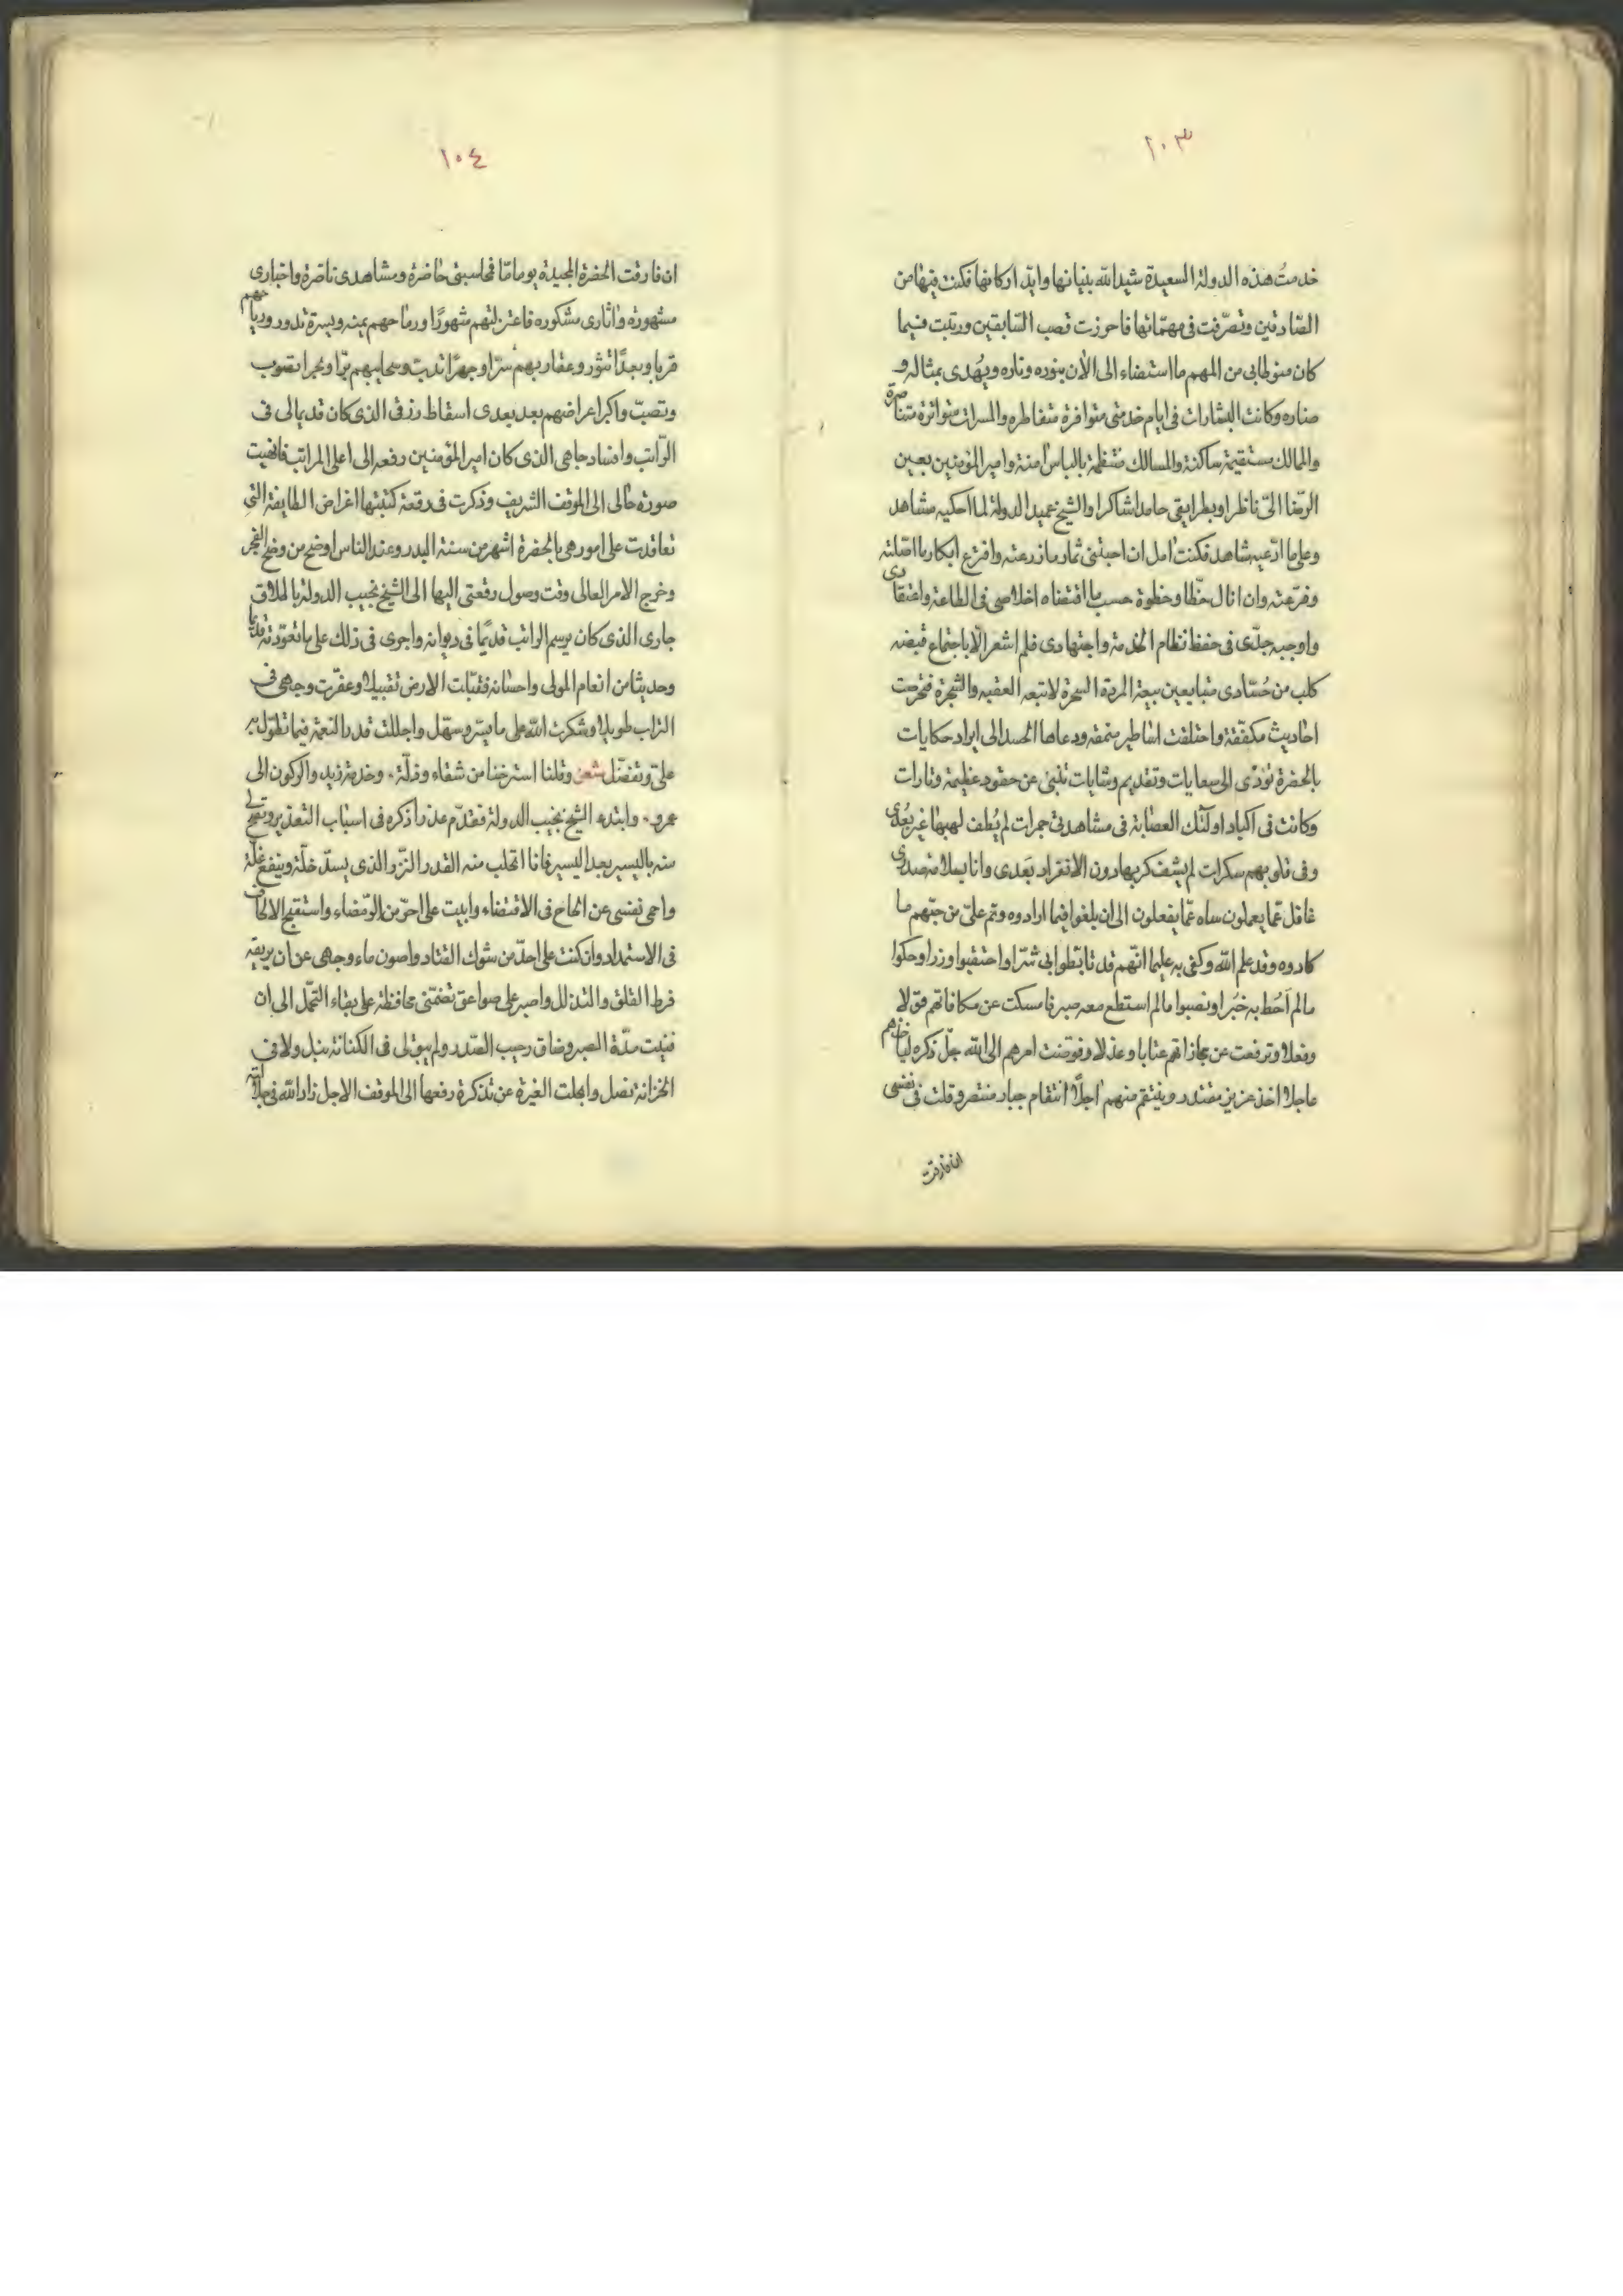 ١٠٣
خدمتُ هذه الدولة السعيدة شيد الله بنيانها وايد اركانها فكنت فيها من
الصّادقين وتصرّفت فى مهمّاتها فاحرزت قصب السّابقين ورتبت فيما
كان منوطا بى من المهم ما استضاء الى الآن بنوره وناره ويُهدى بمثاله و
مناره وكانت البشارات فى ايام خدمتى متوافرة متقاطره والمسرات متواترة متناصرة
والممالك مستقيمة ساكنة والمسالك منتظمة بالباس آمنة وامير المؤمنين بعين
الرّضا الىّ ناظرا وبطرايقى حامدا شاكرا والشيخ عميد الدولة لما احكيه مشاهد
وعلى ما ادّعيه شاهد فكنت آمل ان اجتنى ثمار ما زرعته وافترع ابكار ما اصّلته
وفرّعته وان انال حظّا وحظوة حسب ما اقتضاه اخلاصى فى الطاعة واعتقادى
واوجبه جدّى فى حفظ نظام الخدمة واجتهادى فلم اشعر الّا باجتماع قبضه
كلب من حُسّادى متبايعين بيعة المردة السحرة لا تبعه العقبه والشجرة فخرجت
احاديث مكفّفة واختلقت اساطير منمقه ودعاها الحسد الى ايراد حكايات
بالحضرة تؤدّى الى سعايات وتقديم وشايات تنبئ عن حقود عظيمة وتارات
وكانت فى اكباد اولئك العصابة فى مشاهدتى جمرات لم يُطف لهبها غير بُعدى
وفى قلوبهم سكرات لم يشف كربها دون الانفراد بَعدى وانا بسلامة صدرى
غافل عمّا يعملون ساه عمّا يفعلون الى ان بلغوا فيما ارادوه وتم علىّ من جهتهم ما
كادوه وقد علم الله وكفى به عليما انّهم قد تابّطوا بى شرّا واحتقبوا وزرا وحكوا
ما لم اَحُط به خبُرا ونصبوا ما لم استطع معه صبر فامسكت عن مكافاتهم قولا
وفعلا وترفعت عن مجازاتهم عتابا وعذلا وفوّضت امرهم الى الله جلّ ذكره لياخذهم
عاجلا اخذ عزيز مقتدر وينتقم منهم آجلًا انتقام جبار منتصر وقلت فى نفسى
ان فارقت
١٠٤
ان فارقت الحضرة المجيدة يوما مّا فمحاسنى حاضرة ومشاهدى ناضرة واخبارى
مشهورة واثارى مشكوره فاعتزلتهم شهورًا ورماحهم يمنه ويسرة تدور ورياحهم
قربا وبعدًا تثور وعقاربهم سرّا وجهرًا تدبّ وسحايبهم برّا وبحرا تصوب
وتصبّ واكبر اعراضهم بعد بعدى اسقاط رزقى الذى كان قديما لى فى
الرّاتب وافساد جاهى الذى كان امير المؤمنين رفعه الى اعلى المراتب فانهيت
صورة حالى الى الموقف الشريف وذكرت فى رقعة كتبتها اغراض الطايفة التى
تعاقدت على امور هى بالحضرة اشهر من سنة البدر وعند الناس اوضح من وضح الفجر
وخرج الامر العالى وقت وصول رقعتى اليها الى الشيخ نجيب الدولة باطلاق
جارى الذى كان برسم الراتب قديمًا فى ديوانه واجرى فى ذلك على ما تعوّدته قديما
وحديثا من انعام المولى واحسانه فقبّلت الارض تقبيلا وعفّرت وجهى فى
التراب طويلا وشكرت الله على ما يسّر وسهّل واجللت قدر النعمة فيما تطوّل به
علىّ وتفضّل شعر وقلنا استرحنا من شقاء وذلّة. وخدمة زيد والركون الى
عمرو. وابتدء الشيخ نجيب الدولة فقدّم عذرا ذكره فى اسباب التعذير وتسمح لى
منه باليسير بعد اليسير فانا اتحلب منه القدر النزّر الذى يسدّ خلّة وينفع غلّة
واحمى نفسى عن الحاح فى الاقتضاء وابيت على احرّ من الرّمضاء واستقبح الالحاف
فى الاستمداد وان كنت على احدّ من شوك القتاد واصون ماء وجهى عن ان يريقه
فرط القلق والتذلل واصبر على صواعق تضمّنى محافظة على بقاء التجمّل الى ان
فنيت مدّة الصبر وضاق رحيب الصّدر ولم يبق لى فى الكنانة نبل ولا فى
الخزانة نصل وانجلت الغبرة عن تذكرة رفعها الى الموقف الاجل زاد الله فى جلالته